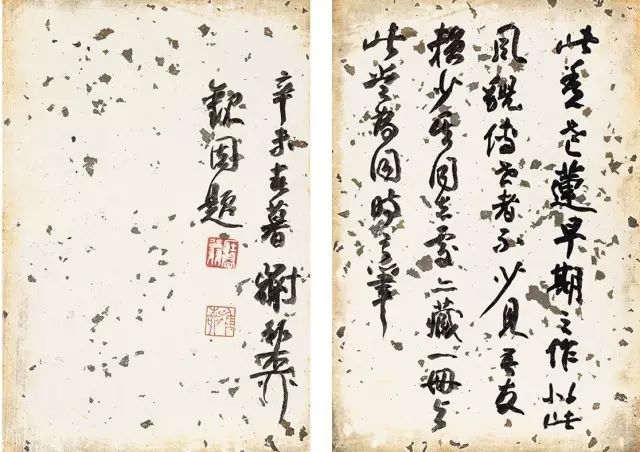 此老蓮早期之作以此
風貌傳世者不少見吾友
賴少其同志處亦藏一冊與
此當為同時之筆
辛未春暮 謝稚柳
觀因題